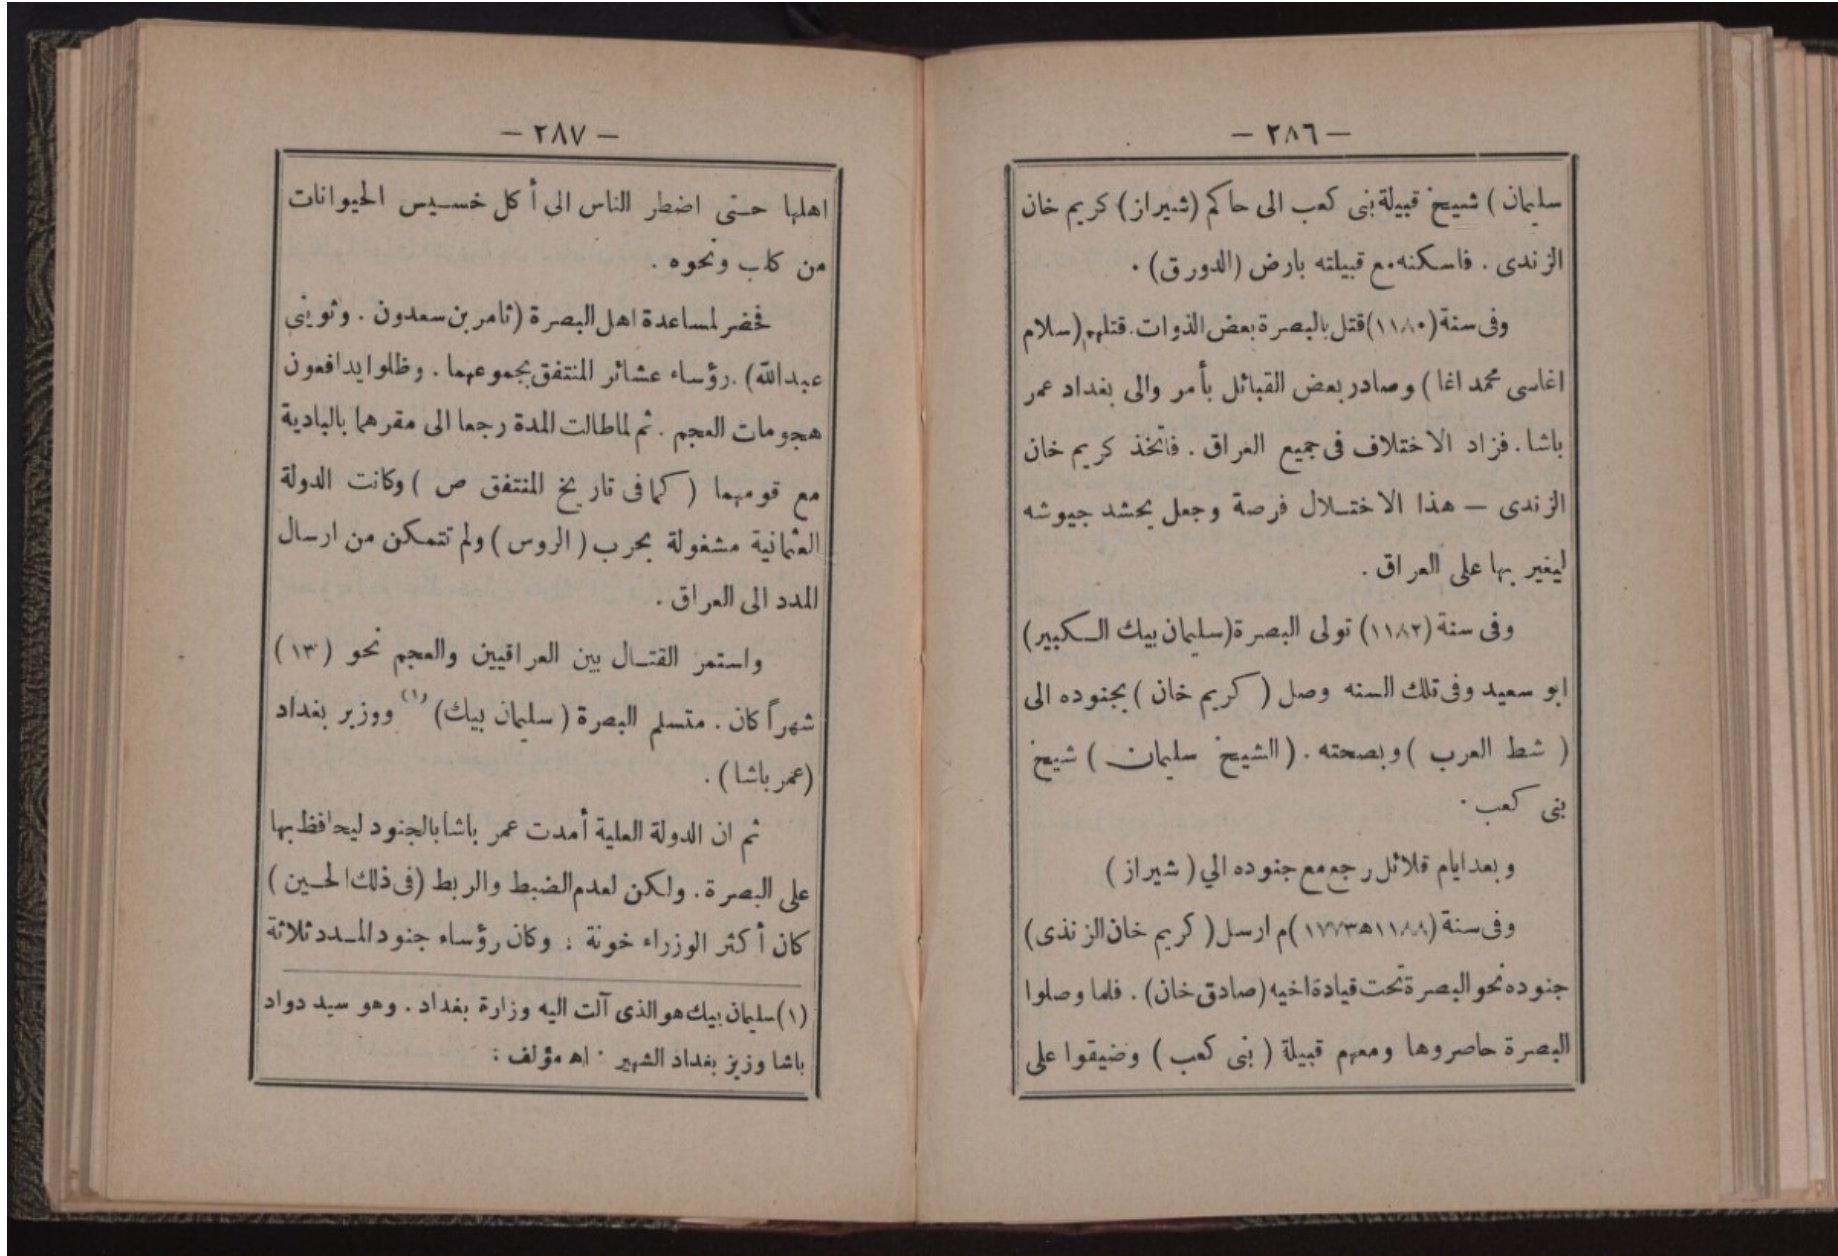 — ٢٨٦ —
سليمان ) شيخ قبيلة بنى كعب الى حاكم (شيراز) كريم خان
الزندى . فاسكنه مع قبيلته بارض (الدورق) .
وفى سنة (١١٨٠) قتل بالبصرة بعض الذوات. قتلهم (سلام
اغاسى محمد اغا ) وصادر بعض القبائل بأمر والى بغداد عمر
باشا . فزاد الاختلاف فى جميع العراق . فاتخذ كريم خان
الزندى — هذا الاختلال فرصة وجعل يحشد جيوشه
ليغير بها على العراق .
وفى سنة (١١٨٢) تولى البصرة (سليمان بيك الكبير)
ابو سعيد وفى تلك السنه وصل ( كريم خان ) بجنوده الى
( شط العرب ) وبصحته . ( الشيخ سليمان ) شيخ
بنى كعب .
وبعد ايام قلائل رجع مع جنوده الي ( شيراز )
وفى سنة (١١٨٨ﻫ ١٧٧٣) م ارسل ( كريم خان الزنذى)
جنوده نحو البصرة تحت قيادة اخيه (صادق خان) . فلما وصلوا
البصرة حاصروها ومعهم قبيلة ( بنى كعب ) وضيقوا على
— ٢٨٧ —
اهلها حتى اضطر الناس الى أكل خسيس الحيوانات
من كلب ونحوه .
فحضر لمساعدة اهل البصرة (ثامر بن سعدون . وثوينى
عبدالله) . رؤساء عشائر المنتفق بجموعهما . وظلوا يدافعون
هجومات العجم . ثم لما طالت المدة رجعا الى مقرهما بالبادية
مع قومهما ( كما فى تاريخ المنتفق ص ) وكانت الدولة
العثمانية مشغولة بحرب ( الروس ) ولم تتمكن من ارسال
المدد الى العراق .
واستمر القتال بين العراقيين والعجم نحو ( ١٣ )
شهراً كان . متسلم البصرة ( سليمان بيك) (١) ووزير بغداد
(عمر باشا ) .
ثم ان الدولة العلية أمدت عمر باشا بالجنود ليحافظ بها
على البصرة . ولكن لعدم الضبط والربط (فى ذلك الحين )
كان أكثر الوزراء خونة : وكان رؤساء جنود المدد ثلاثة
(١) سليمان بيك هو الذى آلت اليه وزارة بغداد . وهو سيد دواد
باشا وزيز بغداد الشهير . اه مؤلف :